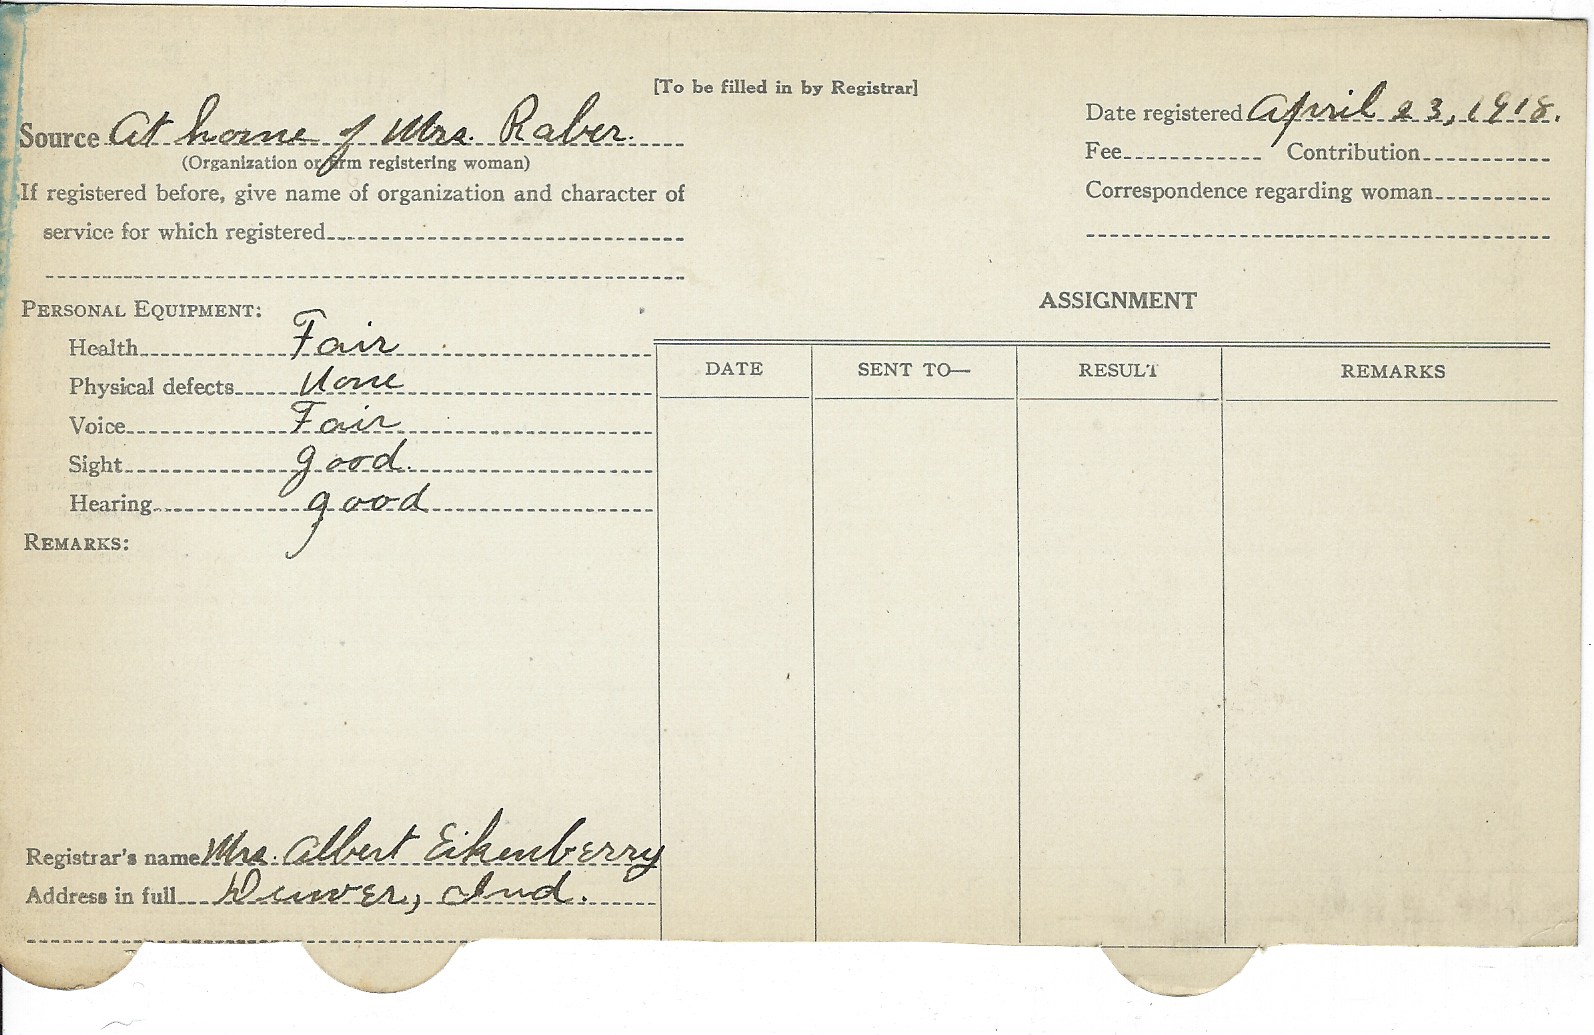 [To be filled in by Registrar]
Source At home of Mrs. Raber.
(Organization or firm registering woman)
If registered before, give name of organization and character of
service for which registered
Date registered April 23, 1918.
Fee Contribution
Correspondence regarding woman
PERSONAL EQUIPMENT:
Health Fair
Physical defects None
Voice Fair
Sight good.
Hearing good
REMARKS:
ASSIGNMENT
DATE SENT TO— RESULT REMARKS
Registrar's name Mrs. Albert Eikenberry
Address in full Denver, Ind.